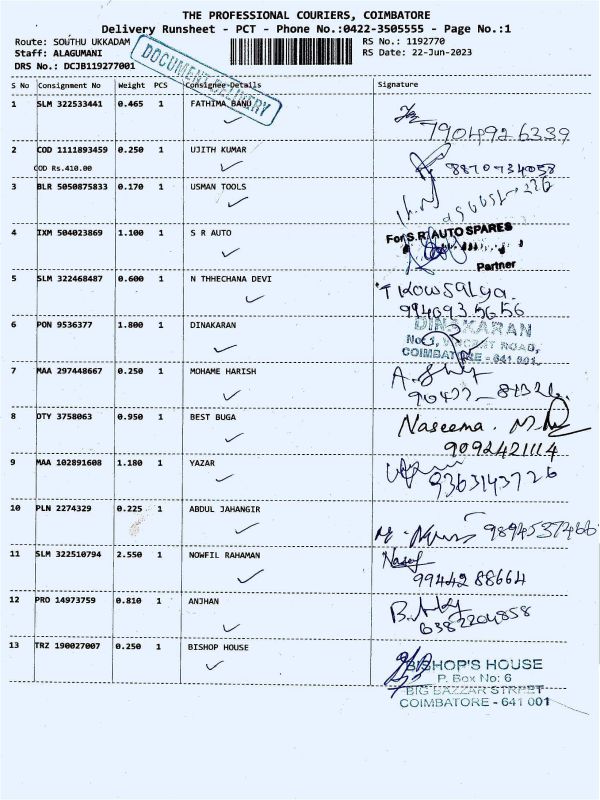 THE PROFESSIONAL COURIERS, COIMBATORE
Delivery Runsheet - PCT - Phone No.:0422-3505555 - Page No.:1
Route: SOUTHU UKKADAM
RS No.: 1192770
Staff: ALAGUMANI
RS Date: 22-Jun-2023
DRS No.: DCJB119277001
DOCUMENT DELIVERY
S No Consignment No Weight PCS Consignee Details Signature
1 SLM 322533441 0.465 1 FATHIMA BANU
7904926339
2 COD 1111893459 0.250 1 UJITH KUMAR
COD Rs.410.00
8870734058
3 BLR 5050875833 0.170 1 USMAN TOOLS
4 IXM 504023869 1.100 1 S R AUTO
For S.R. AUTO SPARES
Partner
5 SLM 322468487 0.600 1 N THHECHANA DEVI
T Kowsalya.
9940935656
6 PON 9536377 1.800 1 DINAKARAN
DINAKARAN
No:1, VINCENT ROAD,
COIMBATORE - 641 001.
7 MAA 297448667 0.250 1 MOHAME HARISH
8 DTY 3758063 0.950 1 BEST BUGA
Naseema. M.
9092421114
9 MAA 102891608 1.180 1 YAZAR
9363143726
10 PLN 2274329 0.225 1 ABDUL JAHANGIR
9894537466
11 SLM 322510794 2.550 1 NOWFIL RAHAMAN
9944288664
12 PRO 14973759 0.810 1 ANJHAN
6382204858
13 TRZ 190027007 0.250 1 BISHOP HOUSE
BISHOP'S HOUSE
P. Box No: 6
BIG BAZZAR STREET
COIMBATORE - 641 001